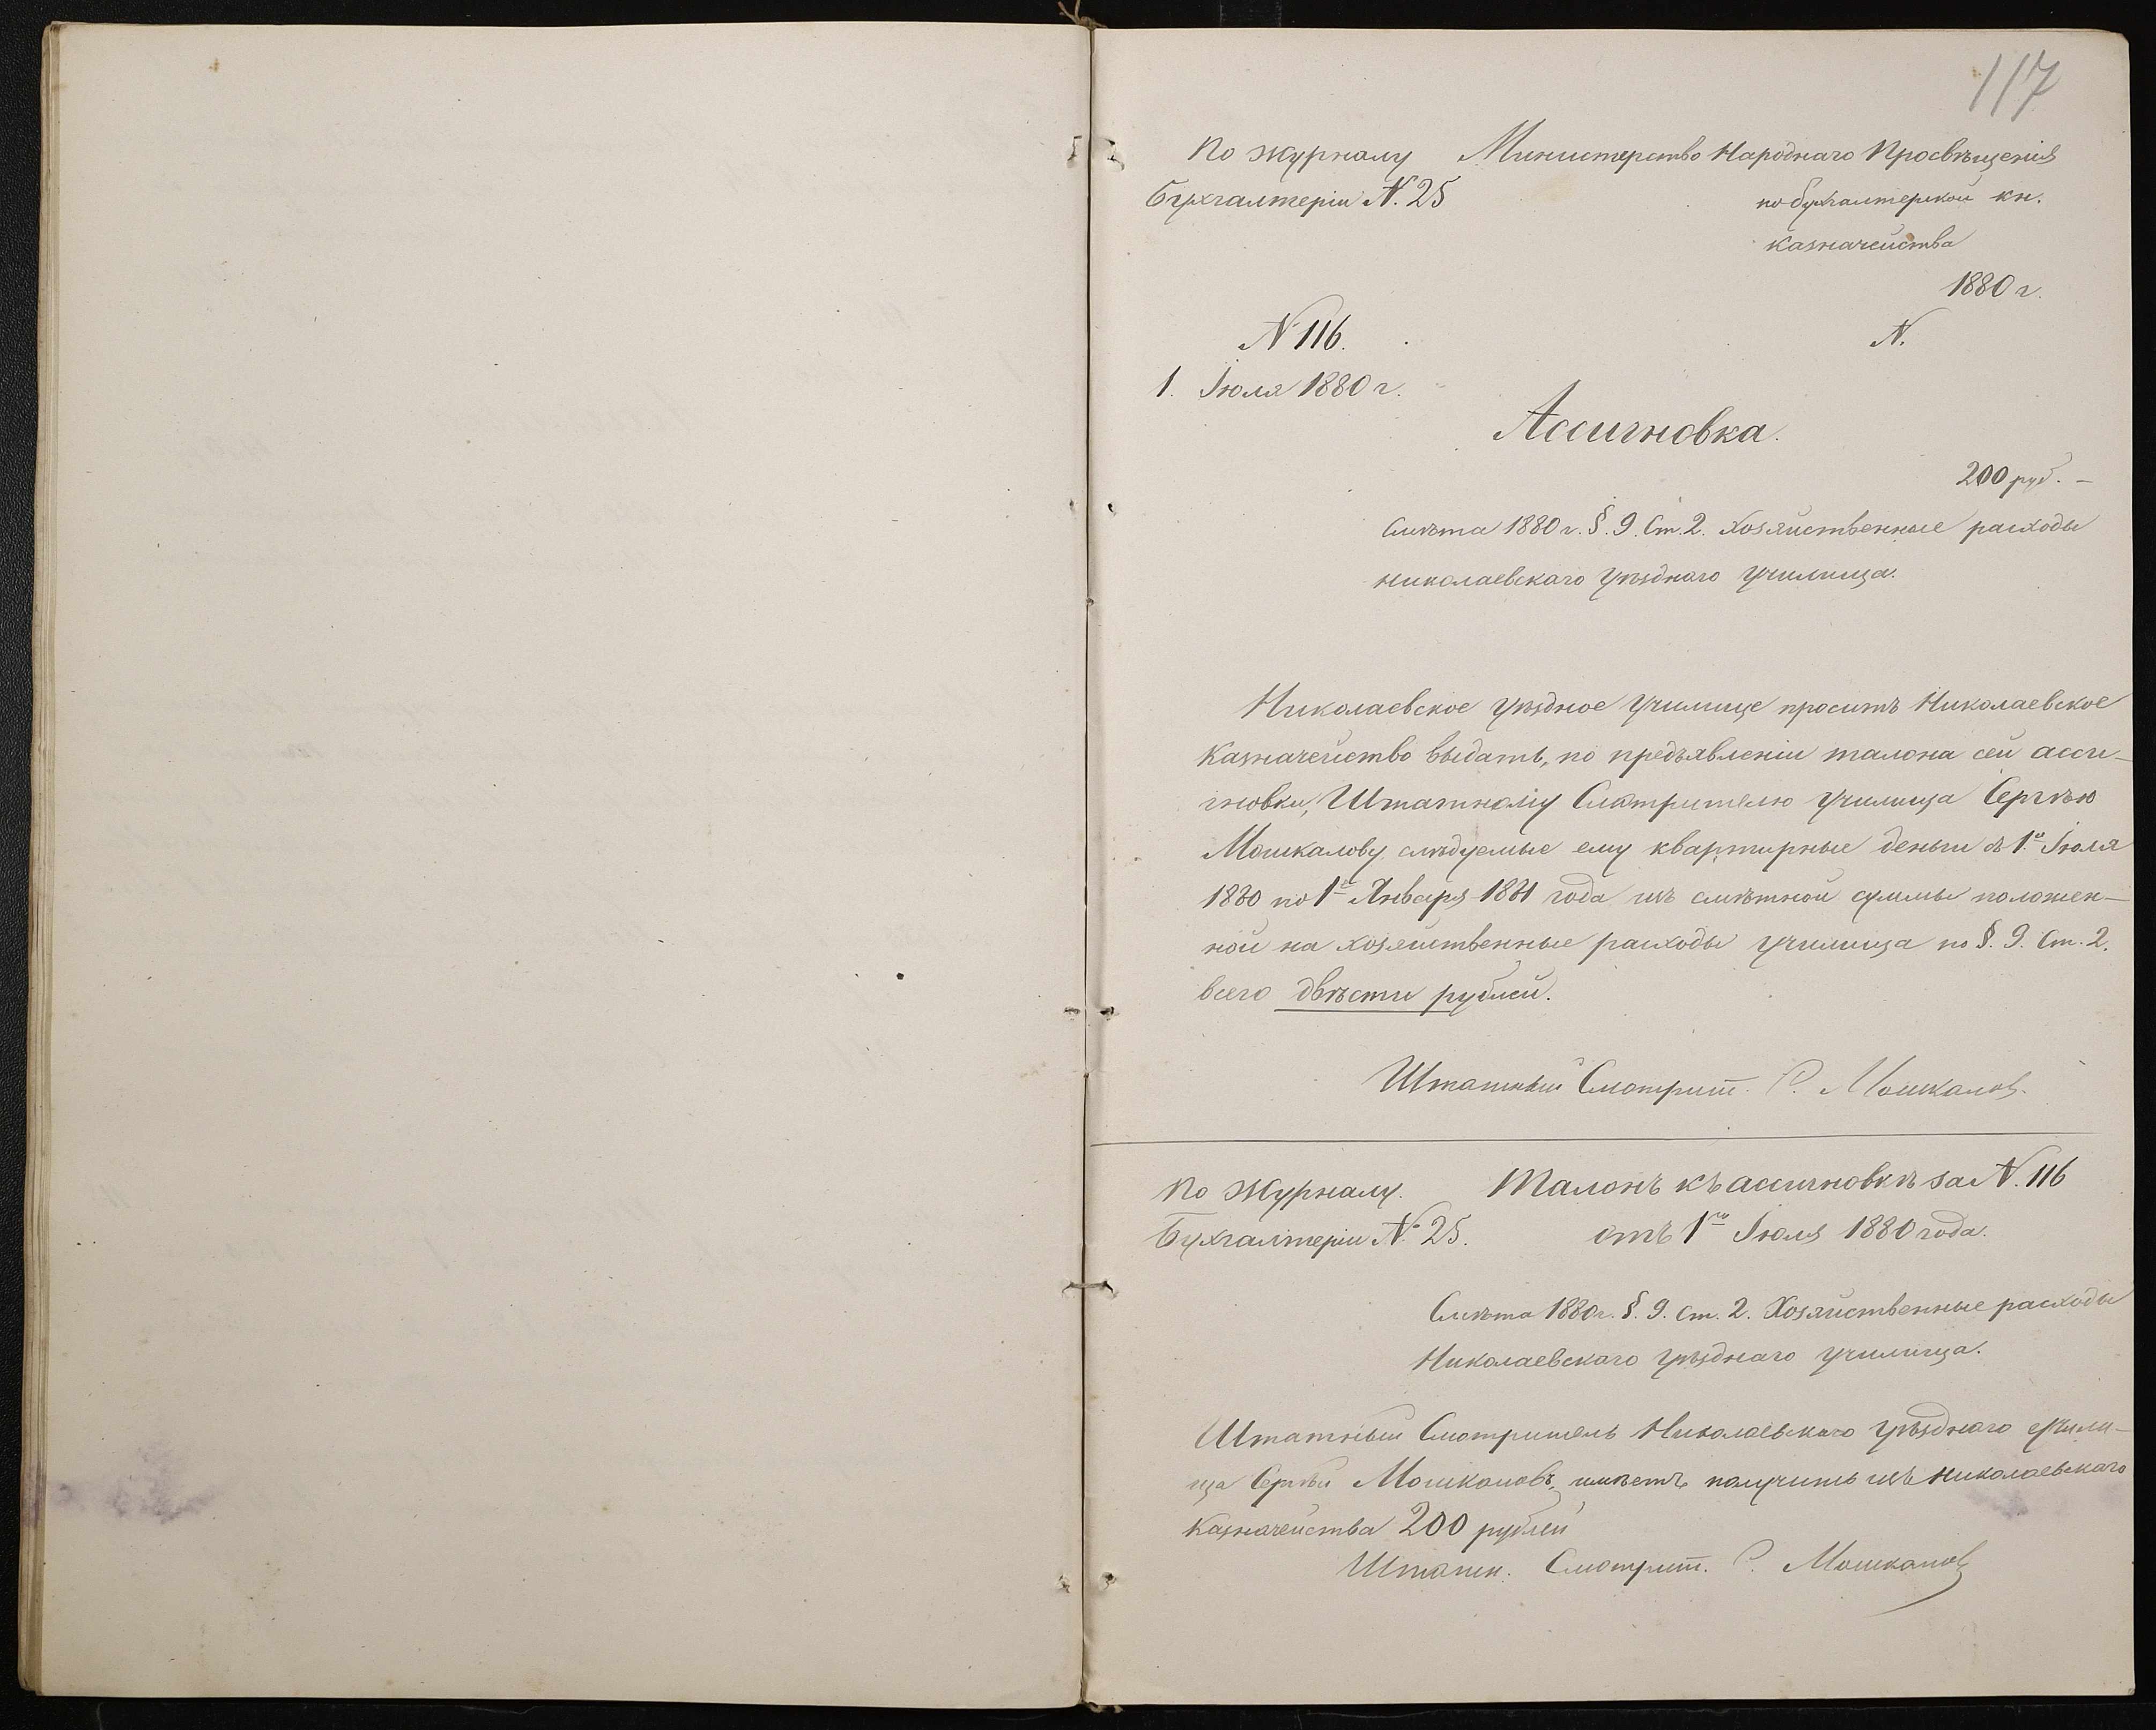 117
По журналу Министерство Народнаго Просвѣщенія
Бухгалтеріи N. 25 по бухгалтерской кн.
казначейства
1880 г.
N 116. N.
1. Іюля 1880 г.
Ассигновка.
200 руб. –
Смѣта 1880 г. §. 9. Ст. 2. Хозяйственные расходы
Николаевскаго Уѣзднаго Училища.
Николаевское Уѣздное Училище проситъ Николаевское
Казначейство выдать, по предъявленіи талона сей асси-
гновки, Штатному Смотрителю Училища Сергѣю
Мошкалову слѣдуемые ему квартирные деньги съ 1го Іюля
1880 по 1е Января 1881 года изъ смѣтной суммы положен-
ной на хозяйственные расходы училища по §. 9. Ст. 2.
всего двѣсти рублей.
Штатный Смотрит. С. Мошкаловъ.
По Журналу. Талонъ къ ассигновкѣ за N. 116
Бухгалтеріи N. 25. отъ 1го Іюля 1880 года.
Смѣта 1880 г. §. 9. Ст. 2. Хозяйственные расходы
Николаевскаго Уѣзднаго Училища.
Штатный Смотритель Николаевскаго Уѣзднаго Учили-
ща Сергѣй Мошкаловъ, имѣетъ получить изъ Николаевскаго
Казначейства 200 рублей
Штатн. Смотрит. С. Мошкаловъ